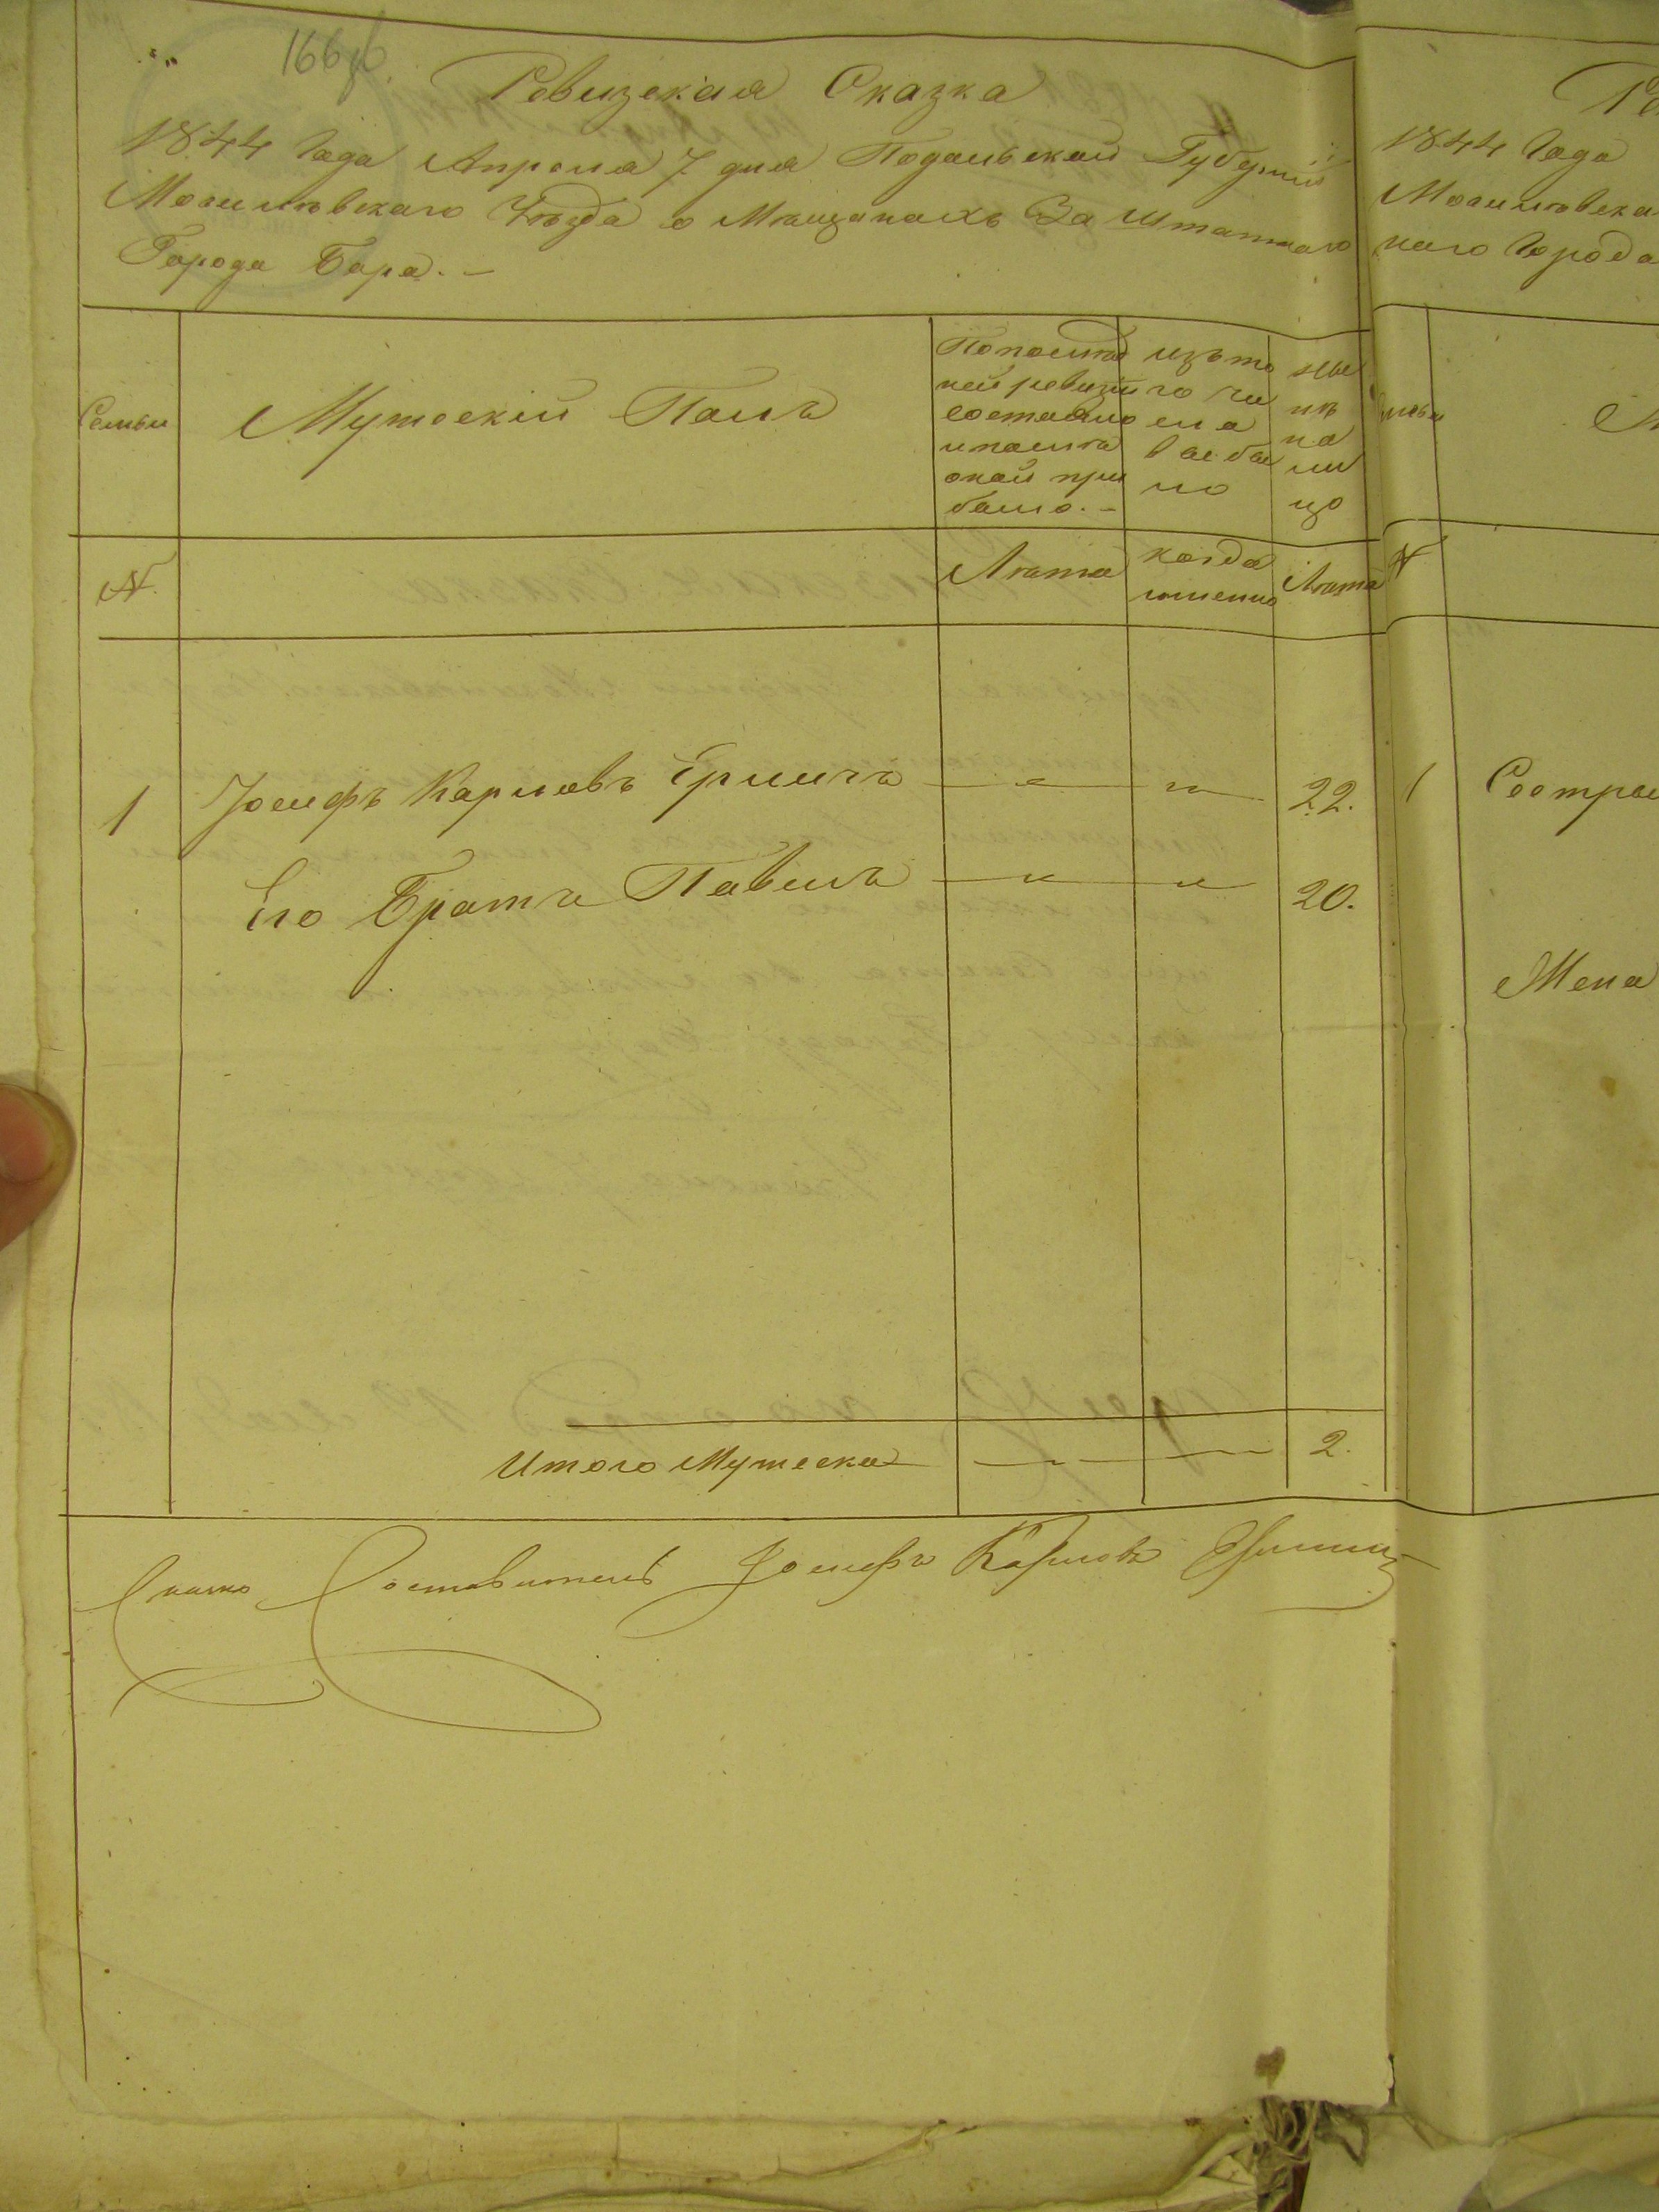 166
Ревизская Сказка
1844 Года Апреля 7 дня Подольской Губернии
Могилевскаго Уезда о Мещанахъ За Штатнаго
Города Бара. –
Семьи
Мужескій Полъ
По послед
ней ревизіи
состояло
и после
оной при
было. –
изъ то
го чи
сла
выбы
ло
ны
нѣ
на
ли
цо
№
Лета
когда
именно
Лета
1
Іосифъ Карловъ
22.
Его Братъ Павелъ
20.
Итого Мужеска
2.
Составитель Іосифъ Карловъ
1844 Года
наго Города
№
1
Сестры
Жена